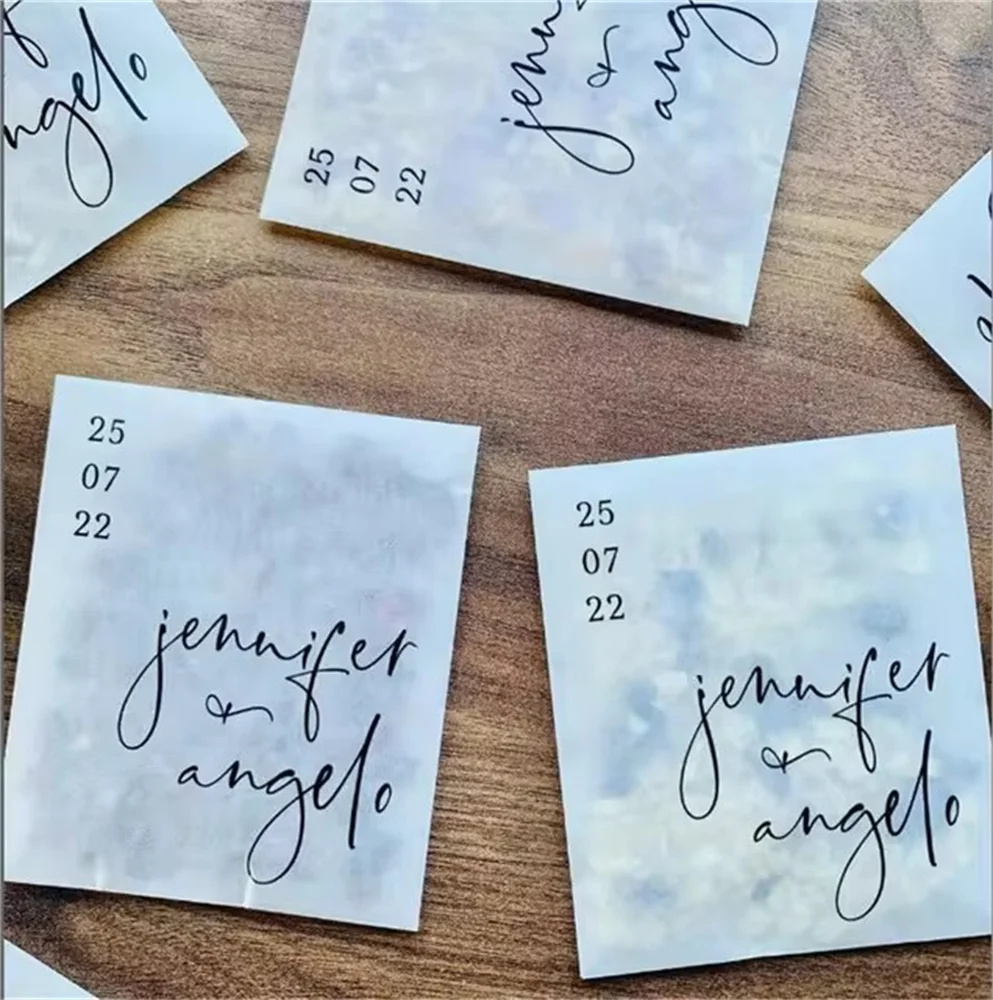 ngelo
jenn
&
ang
25
07
22
25
07
22
jennifer
&
angelo
25
07
22
jennifer
&
angelo